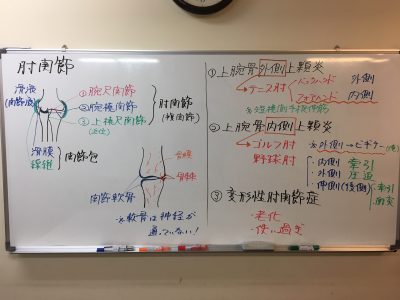 肘関節
滑液
(関節液)
①腕尺関節
②腕橈関節
③上橈尺関節
(近位)
肘関節
(複関節)
滑膜
繊維
関節包
骨膜
関節軟骨
☆軟骨は神経が
通っていない!
①上腕骨外側上顆炎
テニス肘
バックハンド 外側
フォアハンド 内側
☆短橈側手根伸筋
②上腕骨内側上顆炎
ゴルフ肘
野球肘
☆外側→ピッチャー
・内側 牽引
・外側 圧迫
・伸側(後側)
・牽引
・衝突
③変形性肘関節症
・老化
・使い過ぎ